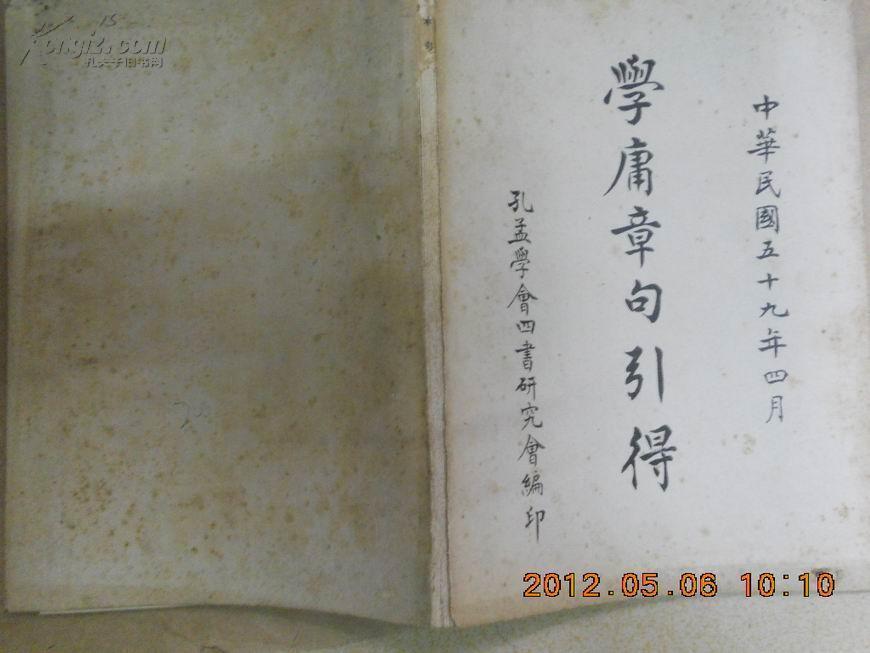 中華民國五十九年四月
學庸章句引得
孔孟學會四書研究會編印
Kongfz.com
孔夫子旧书网
2012.05.06 10:10